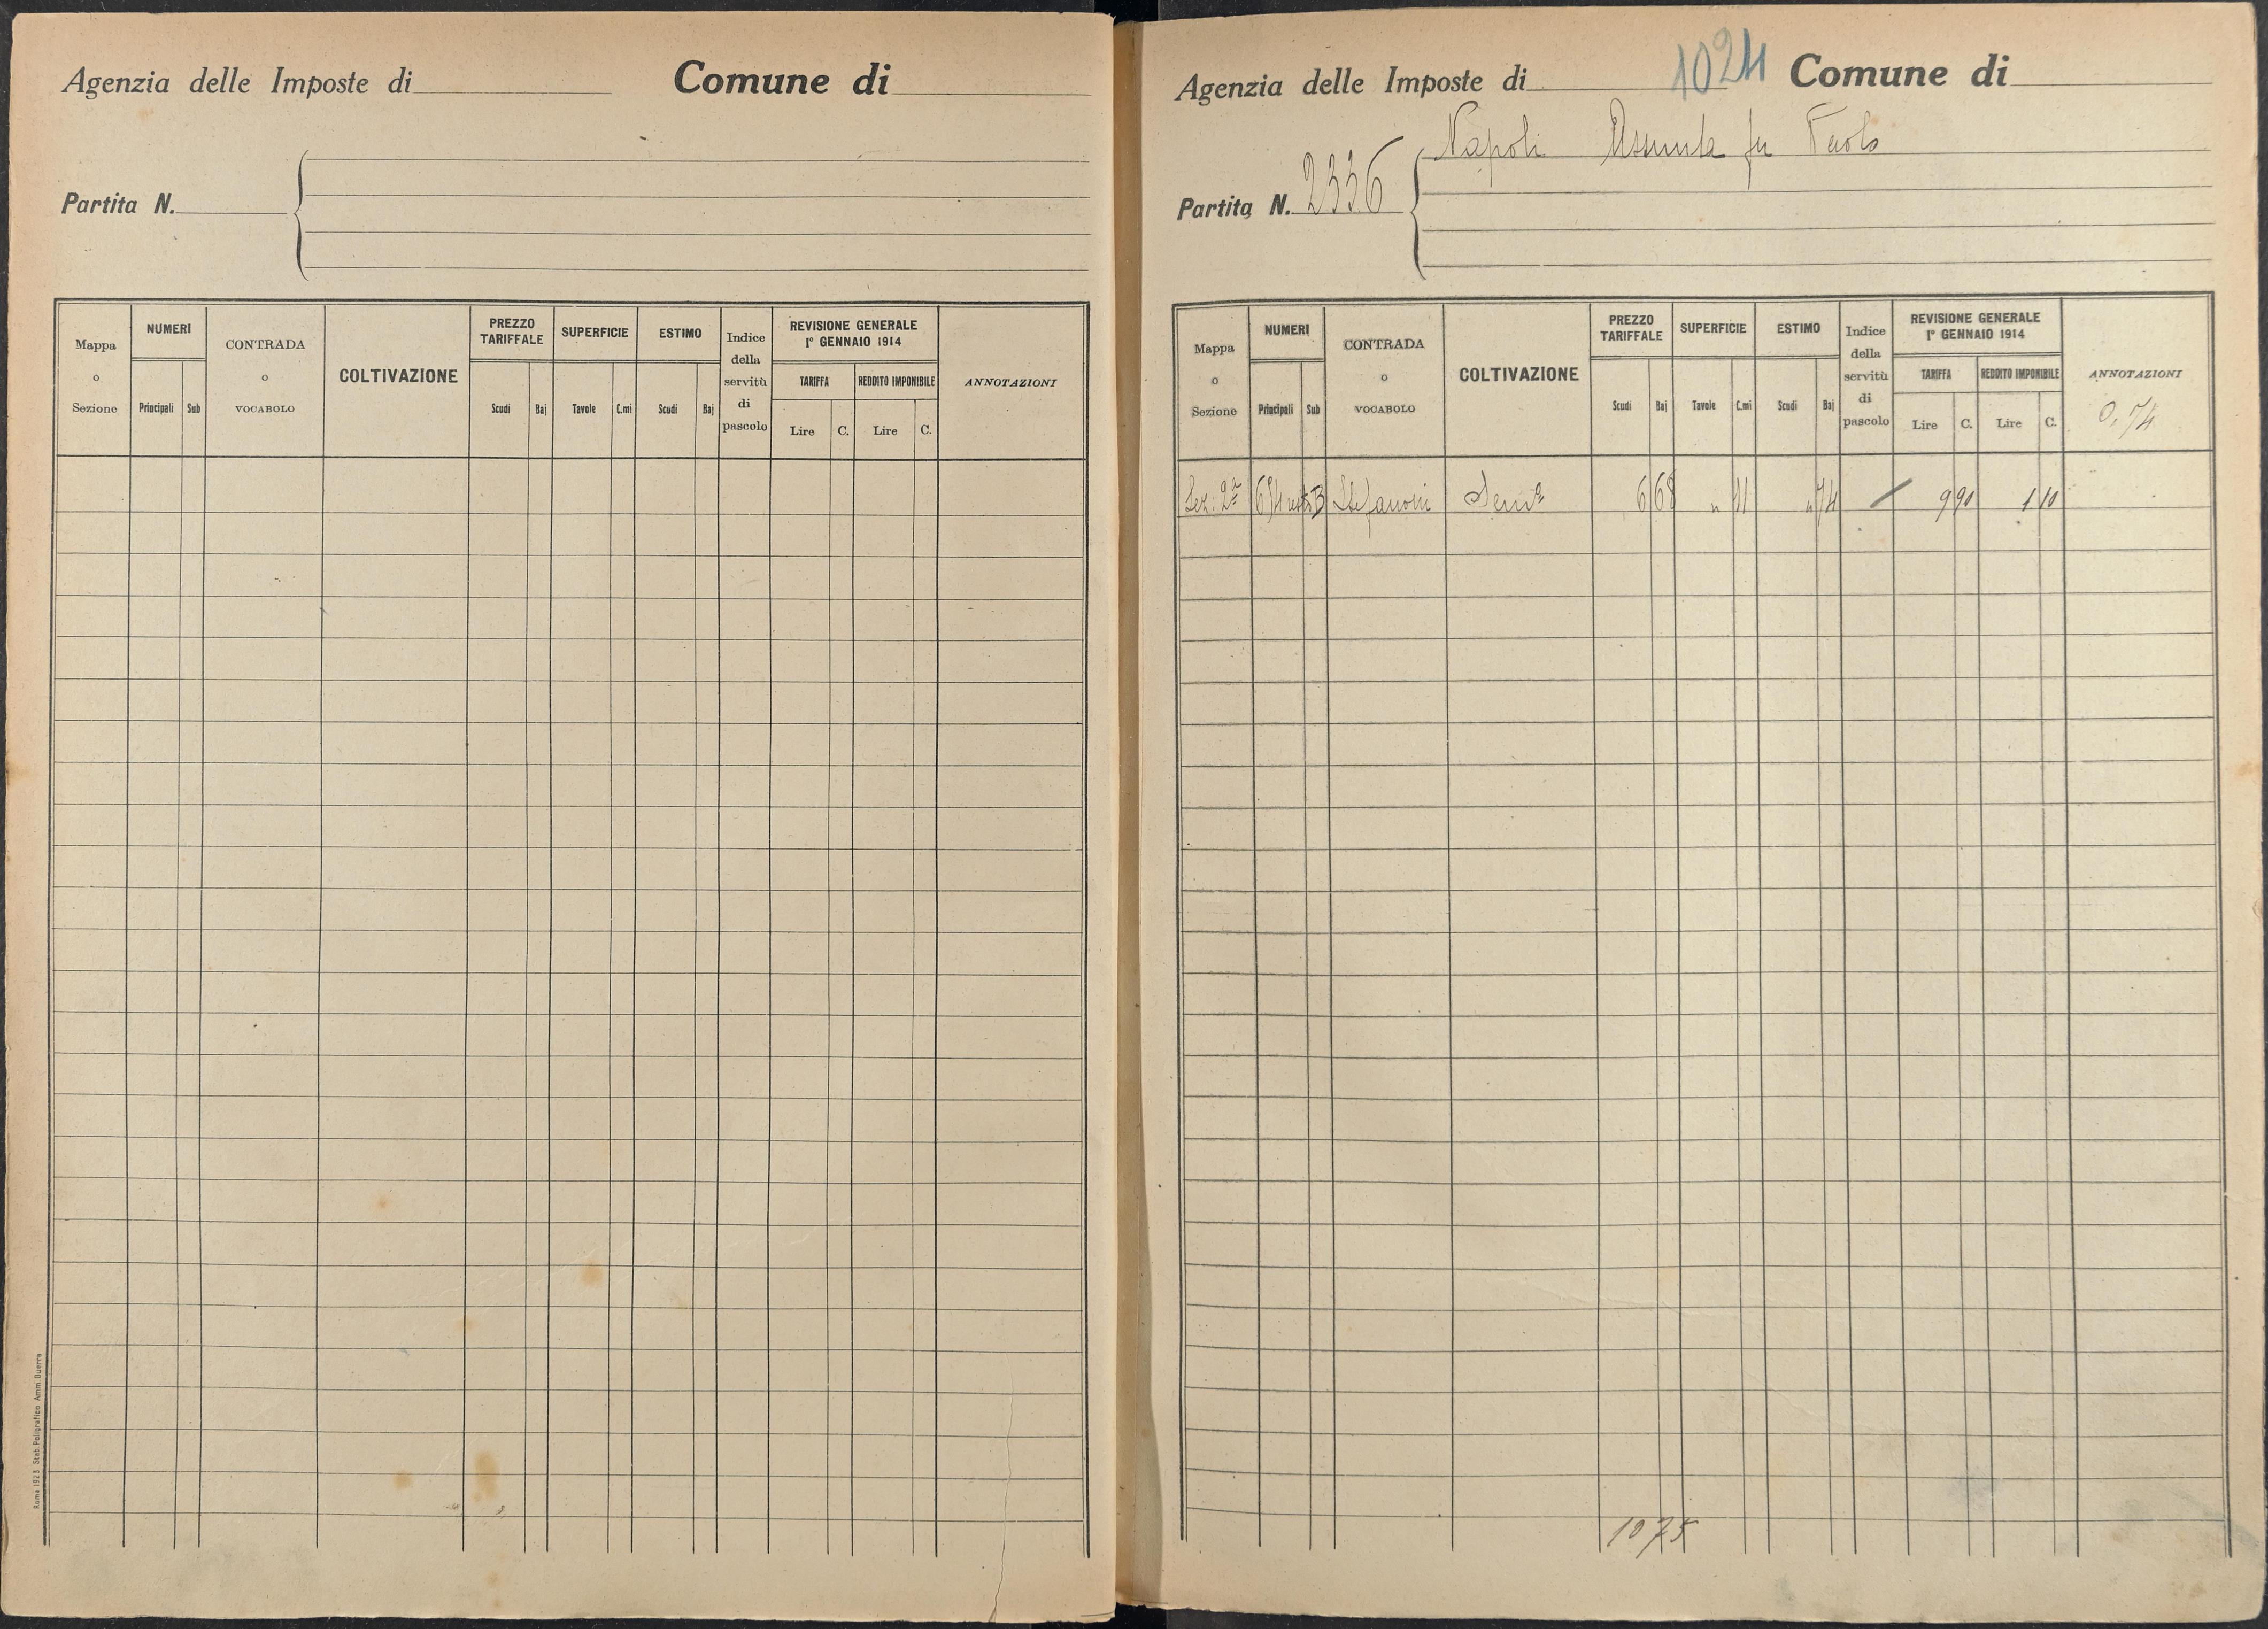 Agenzia delle Imposte di Comune di
Partita N.
Mappa o Sezione NUMERI Principali Sub CONTRADA o VOCABOLO COLTIVAZIONE PREZZO TARIFFALE Scudi Baj SUPERFICIE Tavole C.mi ESTIMO Scudi Baj Indice della servitù di pascolo REVISIONE GENERALE 1° GENNAIO 1914 TARIFFA Lire C. REDDITO IMPONIBILE Lire C. ANNOTAZIONI
Roma 1923 Stab. Poligrafico Amm. Guerra
1024
Agenzia delle Imposte di Comune di
Napoli Assunta fu Paolo
Partita N. 2336
Mappa o Sezione NUMERI Principali Sub CONTRADA o VOCABOLO COLTIVAZIONE PREZZO TARIFFALE Scudi Baj SUPERFICIE Tavole C.mi ESTIMO Scudi Baj Indice della servitù di pascolo REVISIONE GENERALE 1° GENNAIO 1914 TARIFFA Lire C. REDDITO IMPONIBILE Lire C. ANNOTAZIONI
0,74
Sez: 2ª Stefanoni Semº 6 68 " 11 " 74 / 9 90 1 10
1075